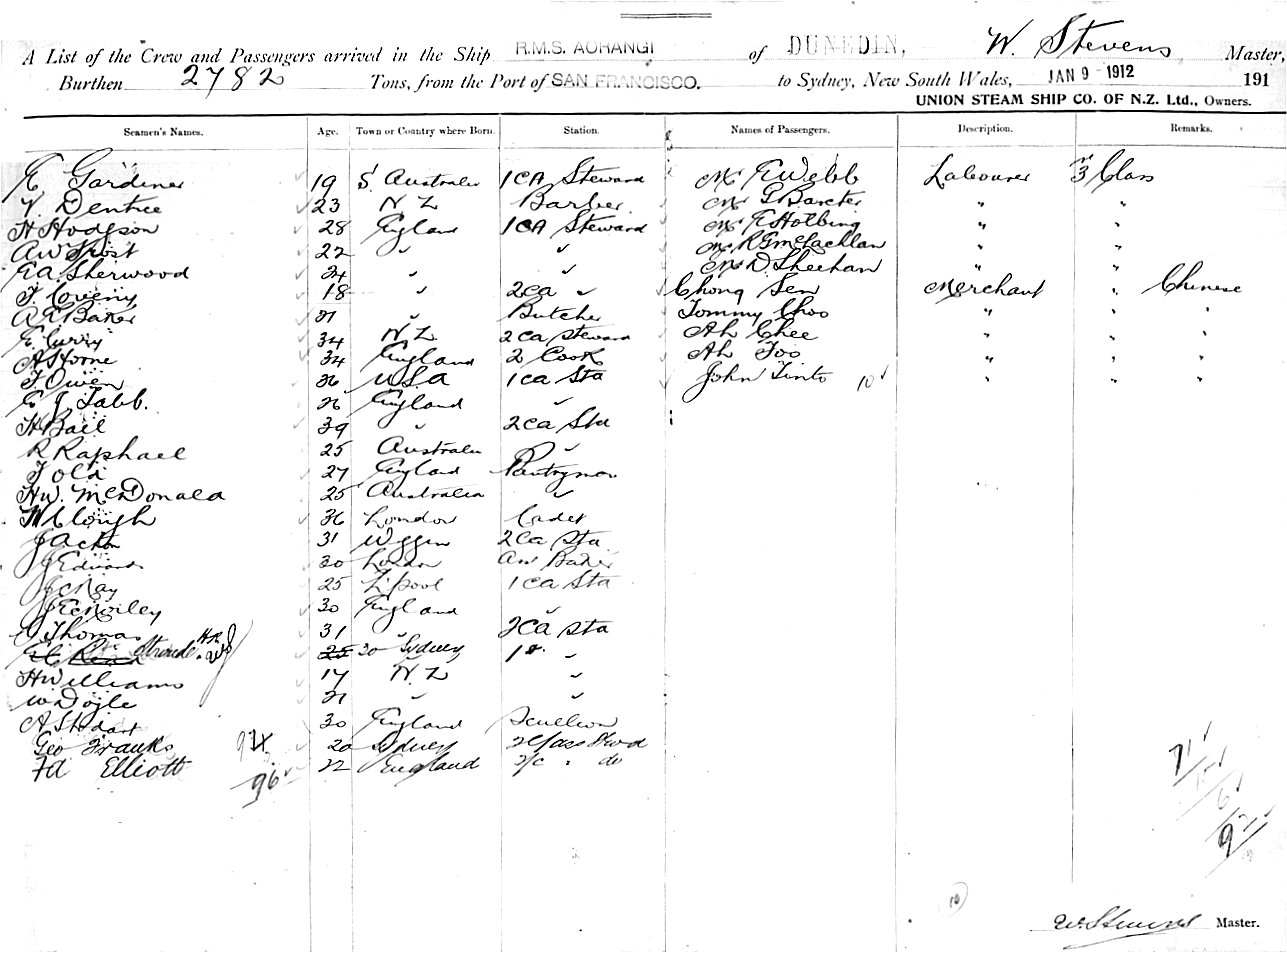 A List of the Crew and Passengers arrived in the Ship R.M.S. AORANGI of DUNEDIN, W. Stevens Master,
Burthen 2782 Tons, from the Port of SAN FRANCISCO. to Sydney, New South Wales, JAN 9 1912 191
UNION STEAM SHIP CO. OF N.Z. Ltd., Owners.
Seamen's Names. Age. Town or Country where Born. Station. Names of Passengers. Description. Remarks.
E Gardiner 19 S. Australia 1CA Steward Mr E Webb Labourer 3 Class
V. Dentree 23 N Z Barber Mr G Baxter " "
H Hodgson 28 England 1CA Steward Mr E Hotbing " "
AW Frost 22 " " Mr R G McLachlan " "
EA Sherwood 24 " " Mr D. Sheehan " "
T. Coveny 18 " 2ca " Chong Sen Merchant " Chinese
A E Baker 21 " Butcher Tommy Choo " " "
E. Curry 34 N Z 2 ca Steward Ah Chee " " "
A Horne 34 England 2 Cook Ah Foo " " "
T. Owen 26 USA 1 ca Sta John Tinto 10 " " "
E J Tabb. 26 England "
H Bail 39 " 2 ca Sta
R Raphael 25 Australia "
T old 27 England Pantryman
HW. McDonald 25 Australia "
W Clough 36 London Cadet
J Acton 31 Wggin 2 Ca Sta
J Edwards 30 London Baker
J C Kay 25 L'pool 1 ca Sta
30 England "
J Thomas 31 " 2 Ca Sta
Stroude 25 30 Sydney 1st "
H Williams 17 N. Z "
W Doyle 21 " "
A Stodart 30 England Scullion
Geo Franks 20 Sydney 2 Class Stwd
Fd Elliott 22 England 2/c " do
94
96
71
15
6
92
10
W. Stevens Master.